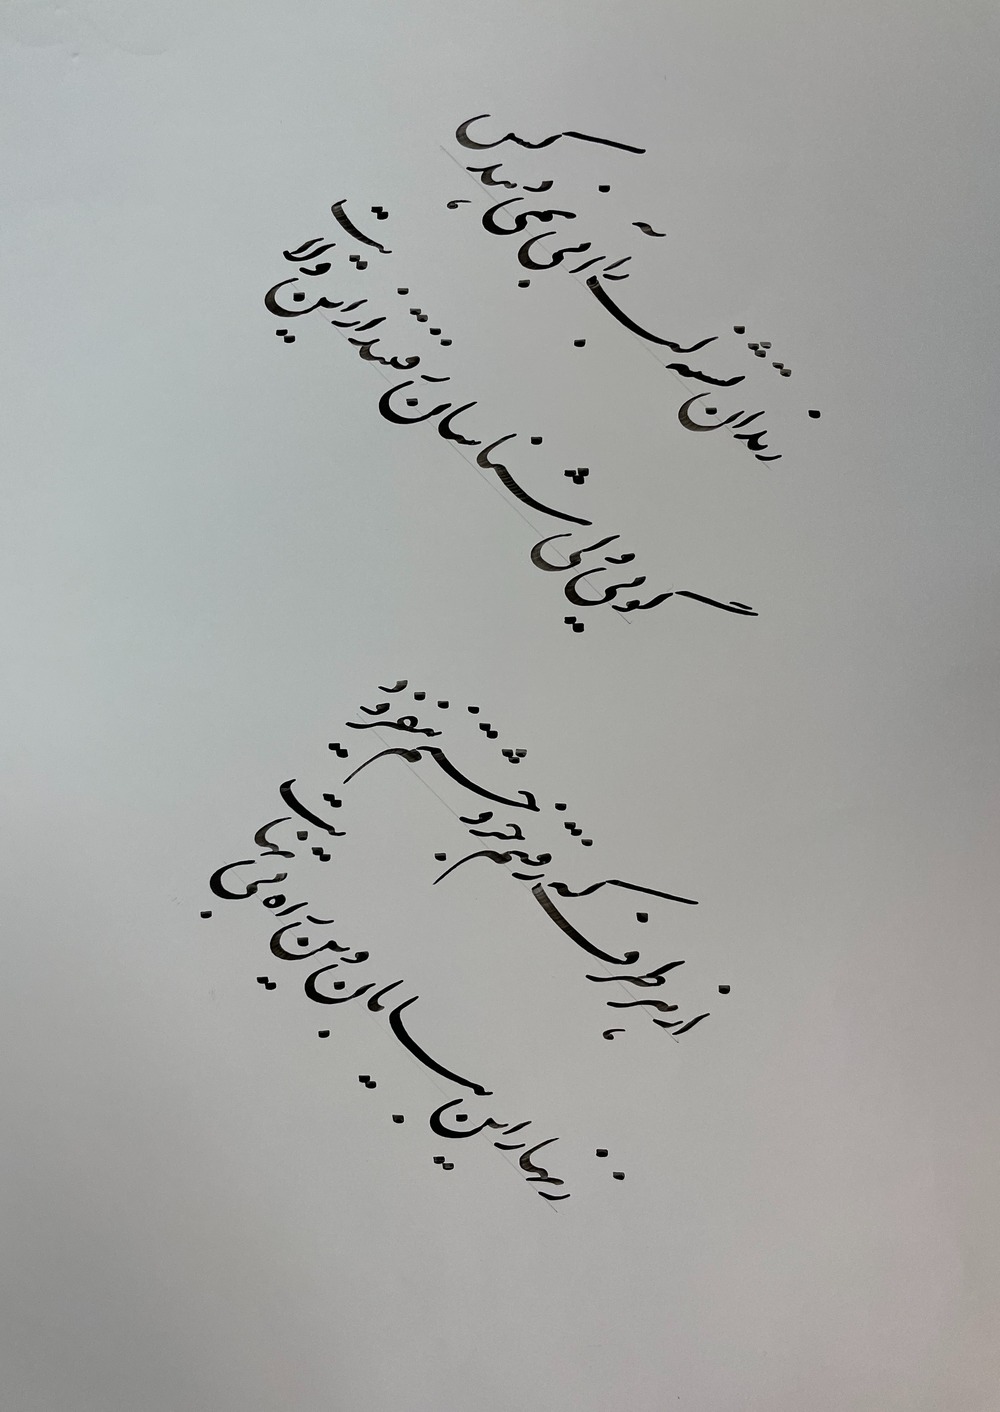 رندان تشنه لب را آبی نمی دهد کس
گویی ولی شناسان رفتند از این ولایت
از هر طرف که رفتم جز وحشتم نیفزود
زنهار این بیابان وین راه بی نهایت